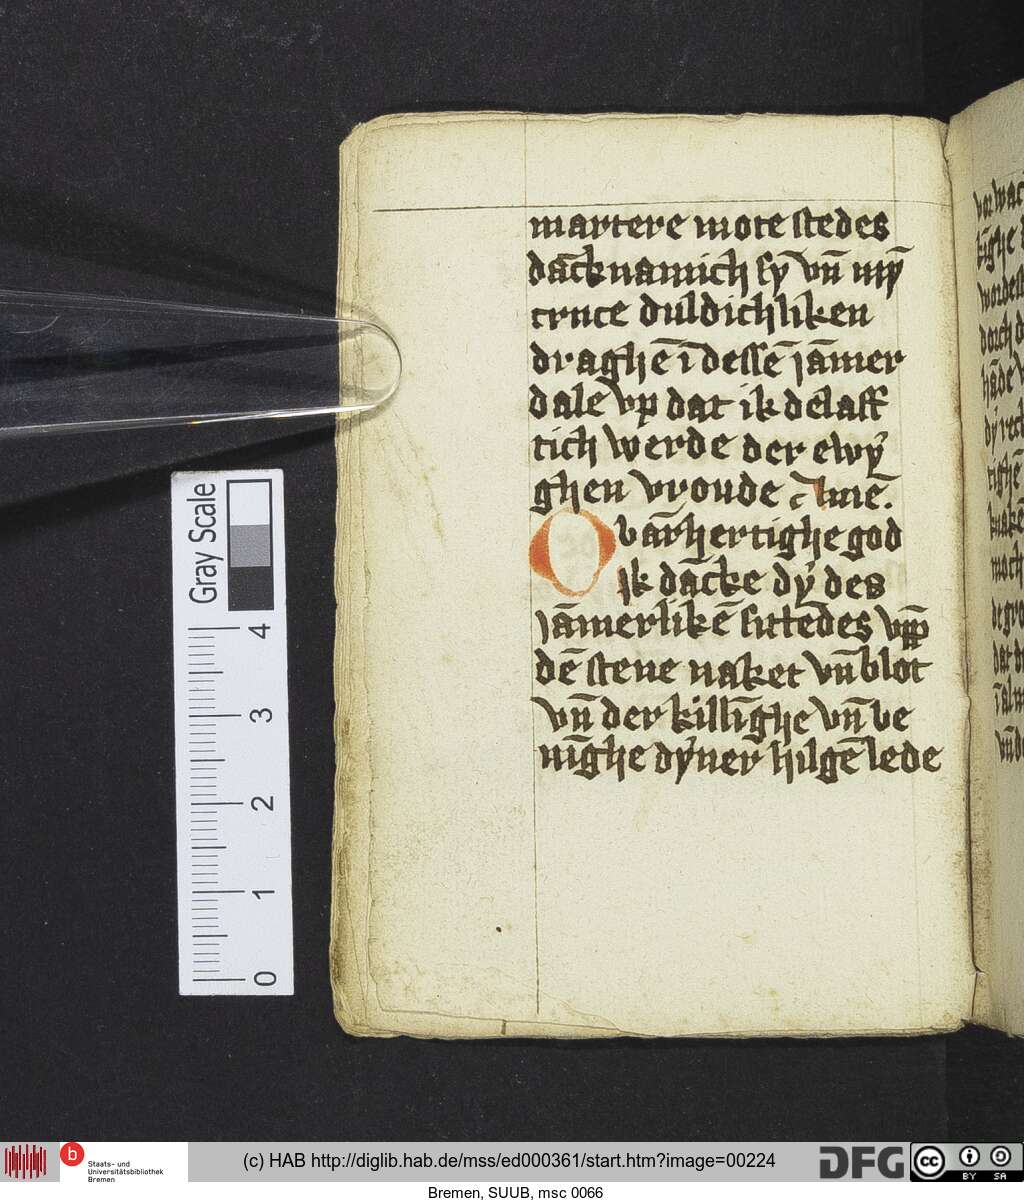 martere mote stedes
dācknamich sȳ vn̄ mȳ
cruce duldichliken
draghē ī dessē jāmer
dale vp dat ik delaff
tich werde der ewy
ghen vroude Amē.
O barm̄hertighe god
Ik dācke dy des
jāmerlikē sittedes vpp
dē stene naket vn̄ blot
vn̄ der killīghe vn̄ be
nīghe dyner hilgē lede
Gray Scale
4
3
2
1
0
b
Staats- und
Universitätsbibliothek
Bremen
(c) HAB http://diglib.hab.de/mss/ed000361/start.htm?image=00224
DFG
cc BY SA
Bremen, SUUB, msc 0066